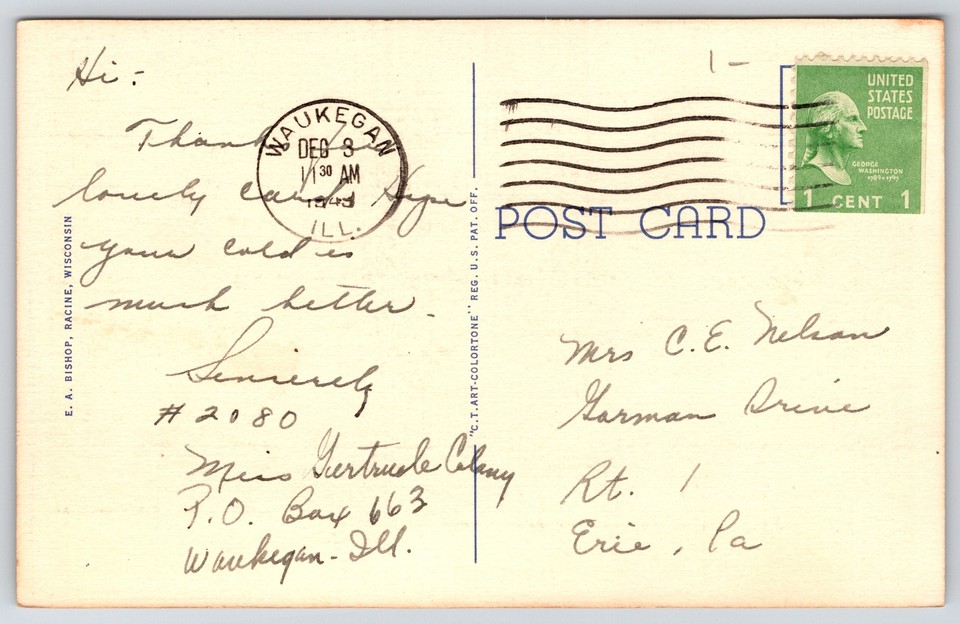 Hi:
Thank
lovely card. Hope
your cold is
much better.
Sincerely
#2080
Miss Gertrude Colany
P.O. Box 663
Waukegan - Ill.
WAUKEGAN
DEC 3
11 30 AM
1943
ILL.
E. A. BISHOP, RACINE, WISCONSIN
"C.T. ART-COLORTONE" REG. U.S. PAT. OFF.
1-
UNITED
STATES
POSTAGE
GEORGE
WASHINGTON
1789-1797
1 CENT 1
POST CARD
Mrs C.E. Nelson
Gorman Drive
Rt. 1
Erie, Pa